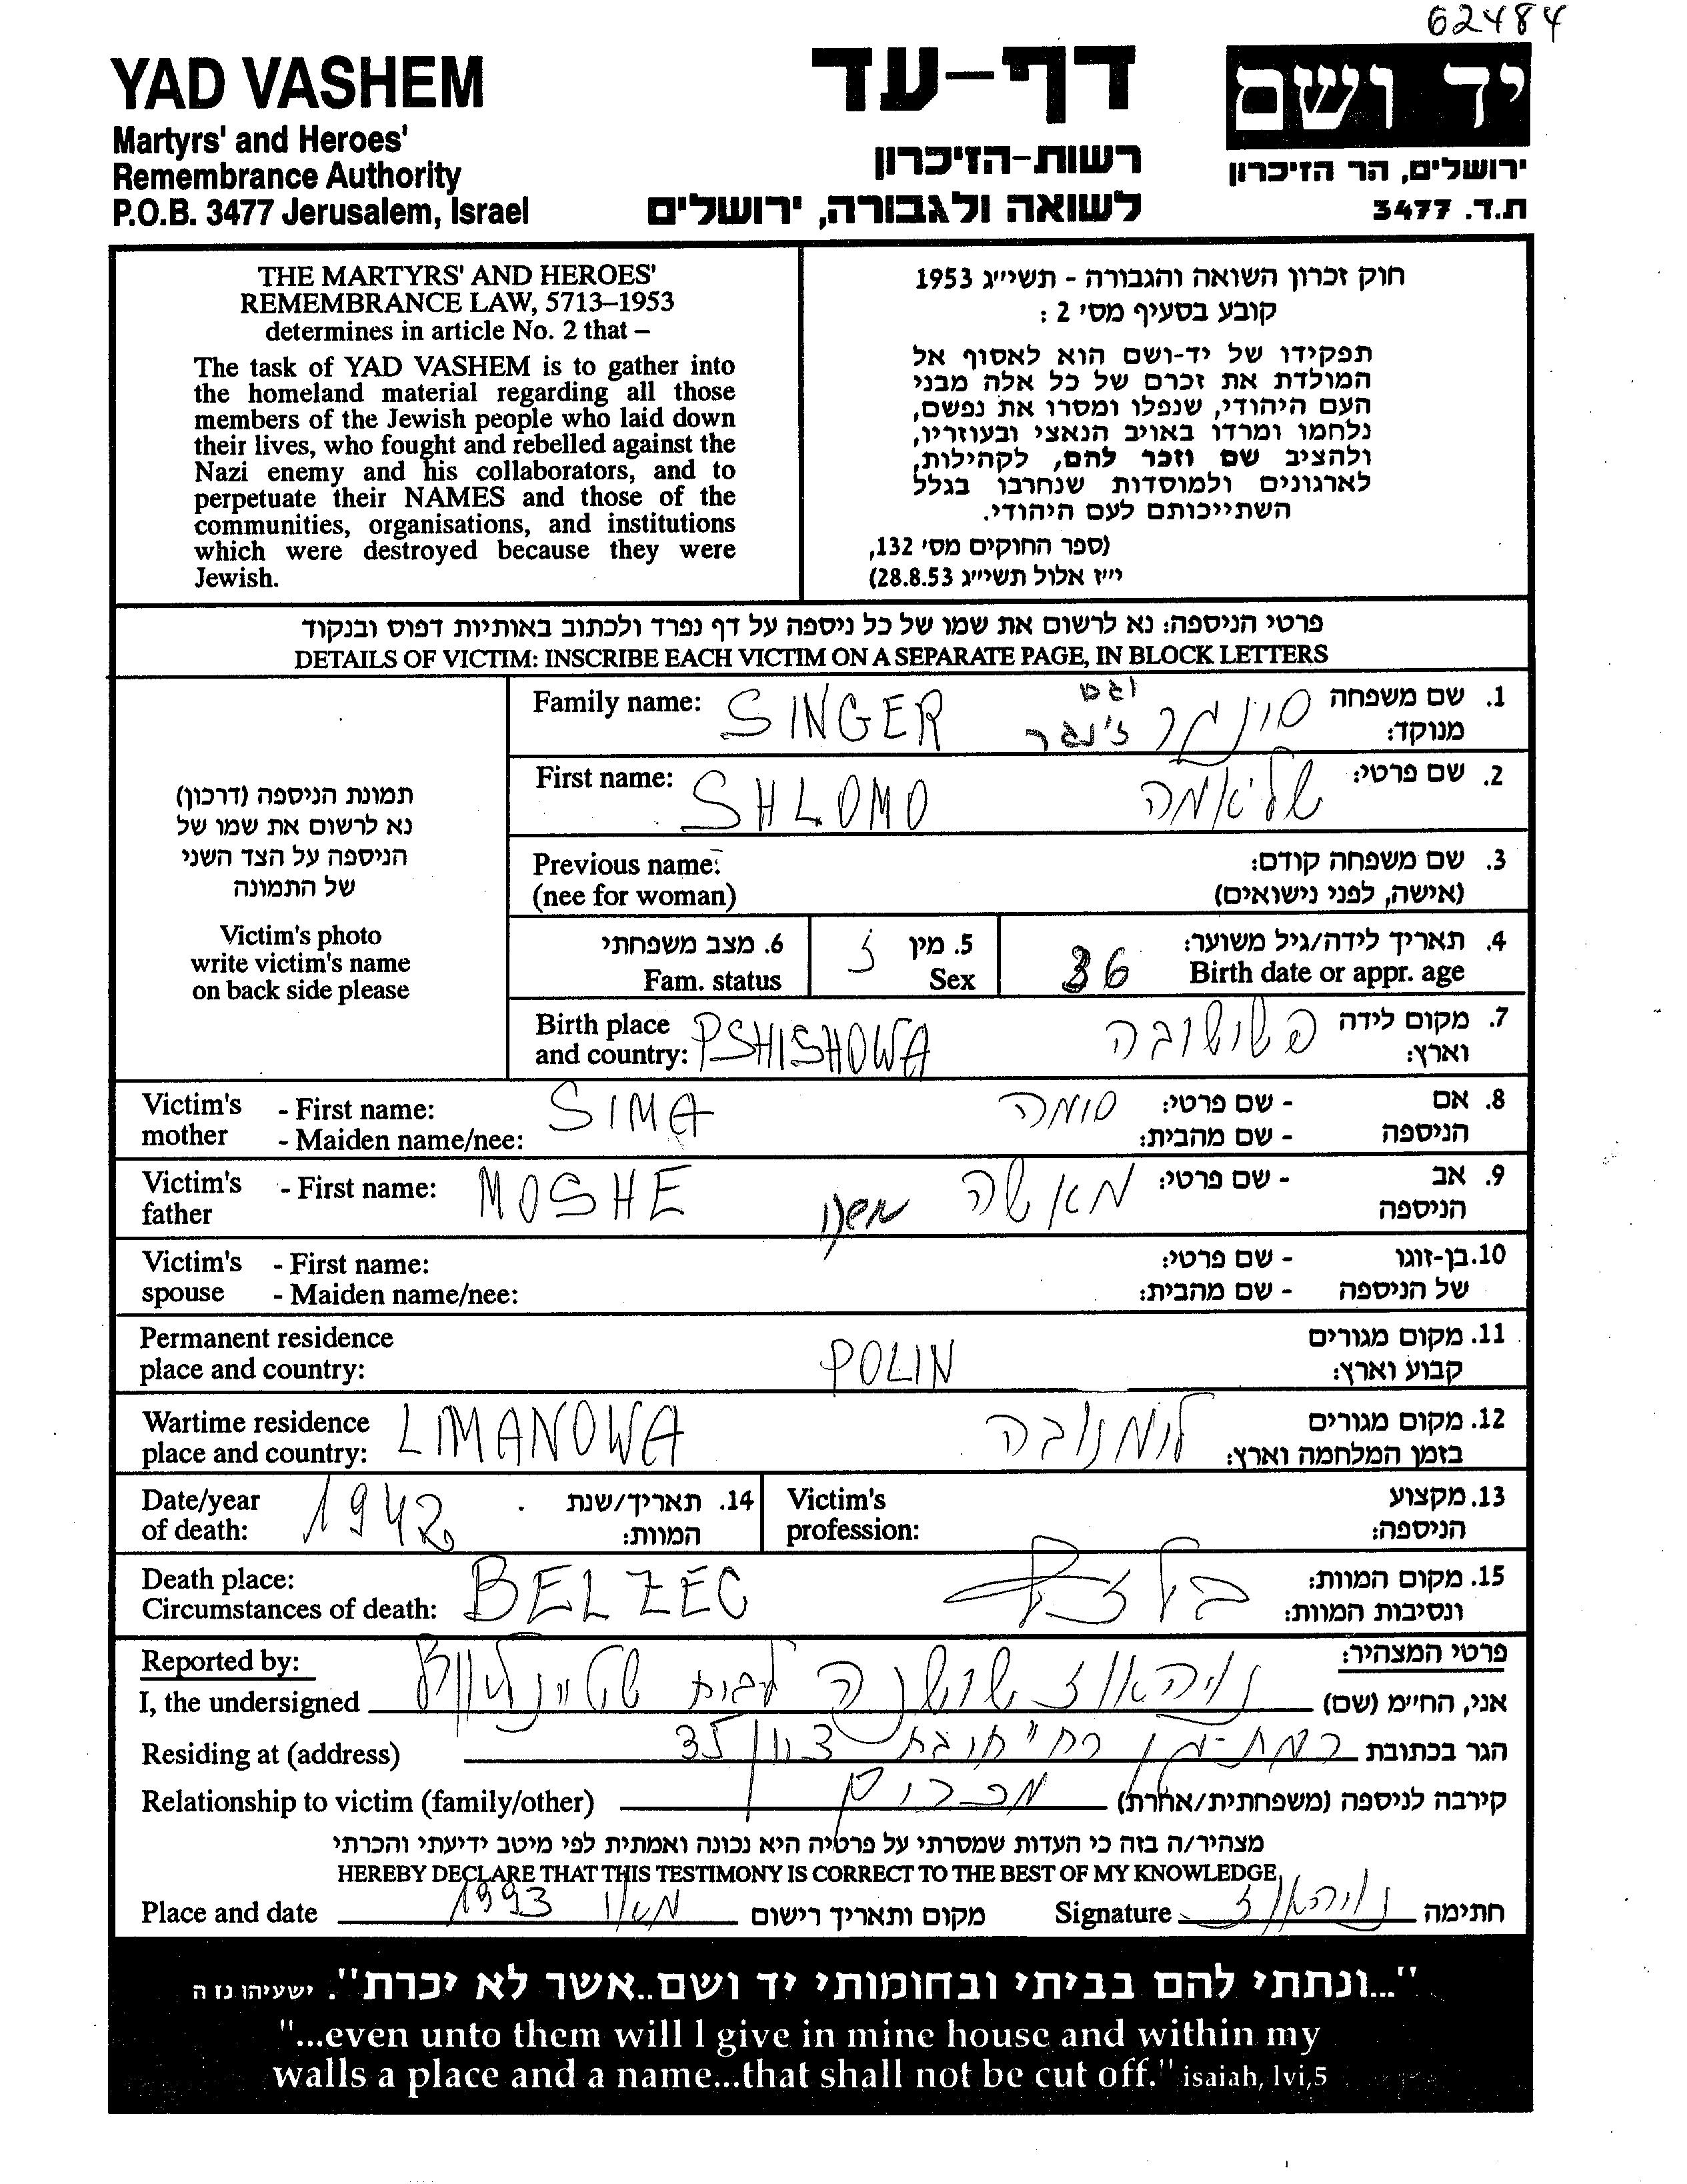 62484
YAD VASHEM
Martyrs' and Heroes'
Remembrance Authority
P.O.B. 3477 Jerusalem, Israel
דף-עד
רשות-הזיכרון
לשואה ולגבורה, ירושלים
יד ושם
ירושלים, הר הזיכרון
ת.ד. 3477
THE MARTYRS' AND HEROES'
REMEMBRANCE LAW, 5713–1953
determines in article No. 2 that –
The task of YAD VASHEM is to gather into
the homeland material regarding all those
members of the Jewish people who laid down
their lives, who fought and rebelled against the
Nazi enemy and his collaborators, and to
perpetuate their NAMES and those of the
communities, organisations, and institutions
which were destroyed because they were
Jewish.
חוק זכרון השואה והגבורה - תשי״ג 1953
קובע בסעיף מס׳ 2 :
תפקידו של יד-ושם הוא לאסוף אל
המולדת את זכרם של כל אלה מבני
העם היהודי, שנפלו ומסרו את נפשם,
נלחמו ומרדו באויב הנאצי ובעוזריו,
ולהציב שם וזכר להם, לקהילות,
לארגונים ולמוסדות שנחרבו בגלל
השתייכותם לעם היהודי.
(ספר החוקים מס׳ 132,
י״ז אלול תשי״ג 28.8.53)
פרטי הניספה: נא לרשום את שמו של כל ניספה על דף נפרד ולכתוב באותיות דפוס ובנקוד
DETAILS OF VICTIM: INSCRIBE EACH VICTIM ON A SEPARATE PAGE, IN BLOCK LETTERS
תמונת הניספה (דרכון)
נא לרשום את שמו של
הניספה על הצד השני
של התמונה
Victim's photo
write victim's name
on back side please
Family name: SINGER
1. שם משפחה מנוקד: סינגר זינגר
First name: SHLOMO
2. שם פרטי: שליאמה
Previous name:
(nee for woman)
3. שם משפחה קודם:
(אישה, לפני נישואים)
4. תאריך לידה/גיל משוער: 36
Birth date or appr. age
5. מין ז
Sex
6. מצב משפחתי
Fam. status
Birth place
and country: PSHISHOWA
7. מקום לידה
וארץ: פשישובה
Victim's mother
- First name: SIMA
- Maiden name/nee:
8. אם הניספה
- שם פרטי: סימה
- שם מהבית:
Victim's father
- First name: MOSHE
9. אב הניספה
- שם פרטי: מאשה
Victim's spouse
- First name:
- Maiden name/nee:
10. בן-זוגו של הניספה
- שם פרטי:
- שם מהבית:
Permanent residence
place and country: POLIN
11. מקום מגורים
קבוע וארץ:
Wartime residence
place and country: LIMANOWA
12. מקום מגורים
בזמן המלחמה וארץ: לימנובה
Date/year
of death: 1942
14. תאריך/שנת
המוות:
Victim's
profession:
13. מקצוע
הניספה:
Death place:
Circumstances of death: BELZEC
15. מקום המוות:
ונסיבות המוות:
Reported by:
פרטי המצהיר:
I, the undersigned
אני, החי״מ (שם) נויהאוז שושנה לבית
Residing at (address)
הגר בכתובת רמת-גן רח״ חיבת ציון 35
Relationship to victim (family/other)
קירבה לניספה (משפחתית/אחרת)
מצהיר/ה בזה כי העדות שמסרתי על פרטיה היא נכונה ואמתית לפי מיטב ידיעתי והכרתי
HEREBY DECLARE THAT THIS TESTIMONY IS CORRECT TO THE BEST OF MY KNOWLEDGE
Place and date 1993 מאי מקום ותאריך רישום
Signature נויהאוז חתימה
"...ונתתי להם בביתי ובחומותי יד ושם..אשר לא יכרת". ישעיהו נז ה
"...even unto them will I give in mine house and within my
walls a place and a name...that shall not be cut off." isaiah, lvi,5